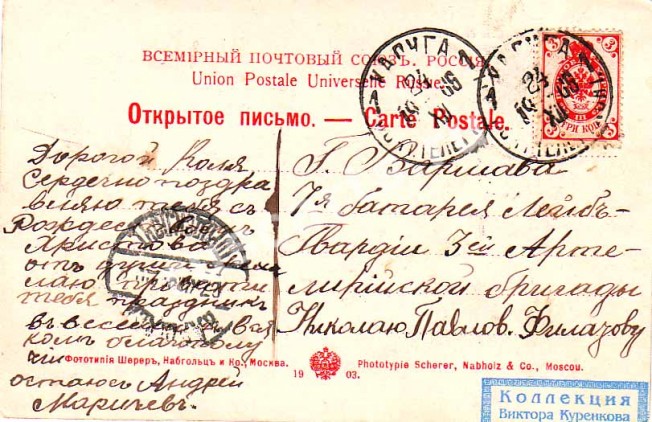 ВСЕМІРНЫЙ ПОЧТОВЫЙ СОЮЗЪ. РОССІЯ.
Union Postale Universelle Russie.
Открытое письмо. — Carte Postale.
КАЛУГА
24
КАЛУГА
24
3
3
ТРИ КОП
Дорогой Коля
Сердечно поздра
вляю тебя съ
Рождествомъ
Христова
отъ души жела
лаю провести
тебѣ праздникъ
въ всевозмо
комъ благополу
чіи
остаюсь Андрей
Маричевъ.
Г. Варшава
7я батарея Лейбъ-
Гвардіи 3ей Арте-
лирійской бригады
Николаю Павлов. Филазову
Фототипія Шереръ, Набгольцъ и Ко., Москва.
1903.
Phototypie Scherer, Nabholz & Co., Moscou.
Коллекция
Виктора Куренкова